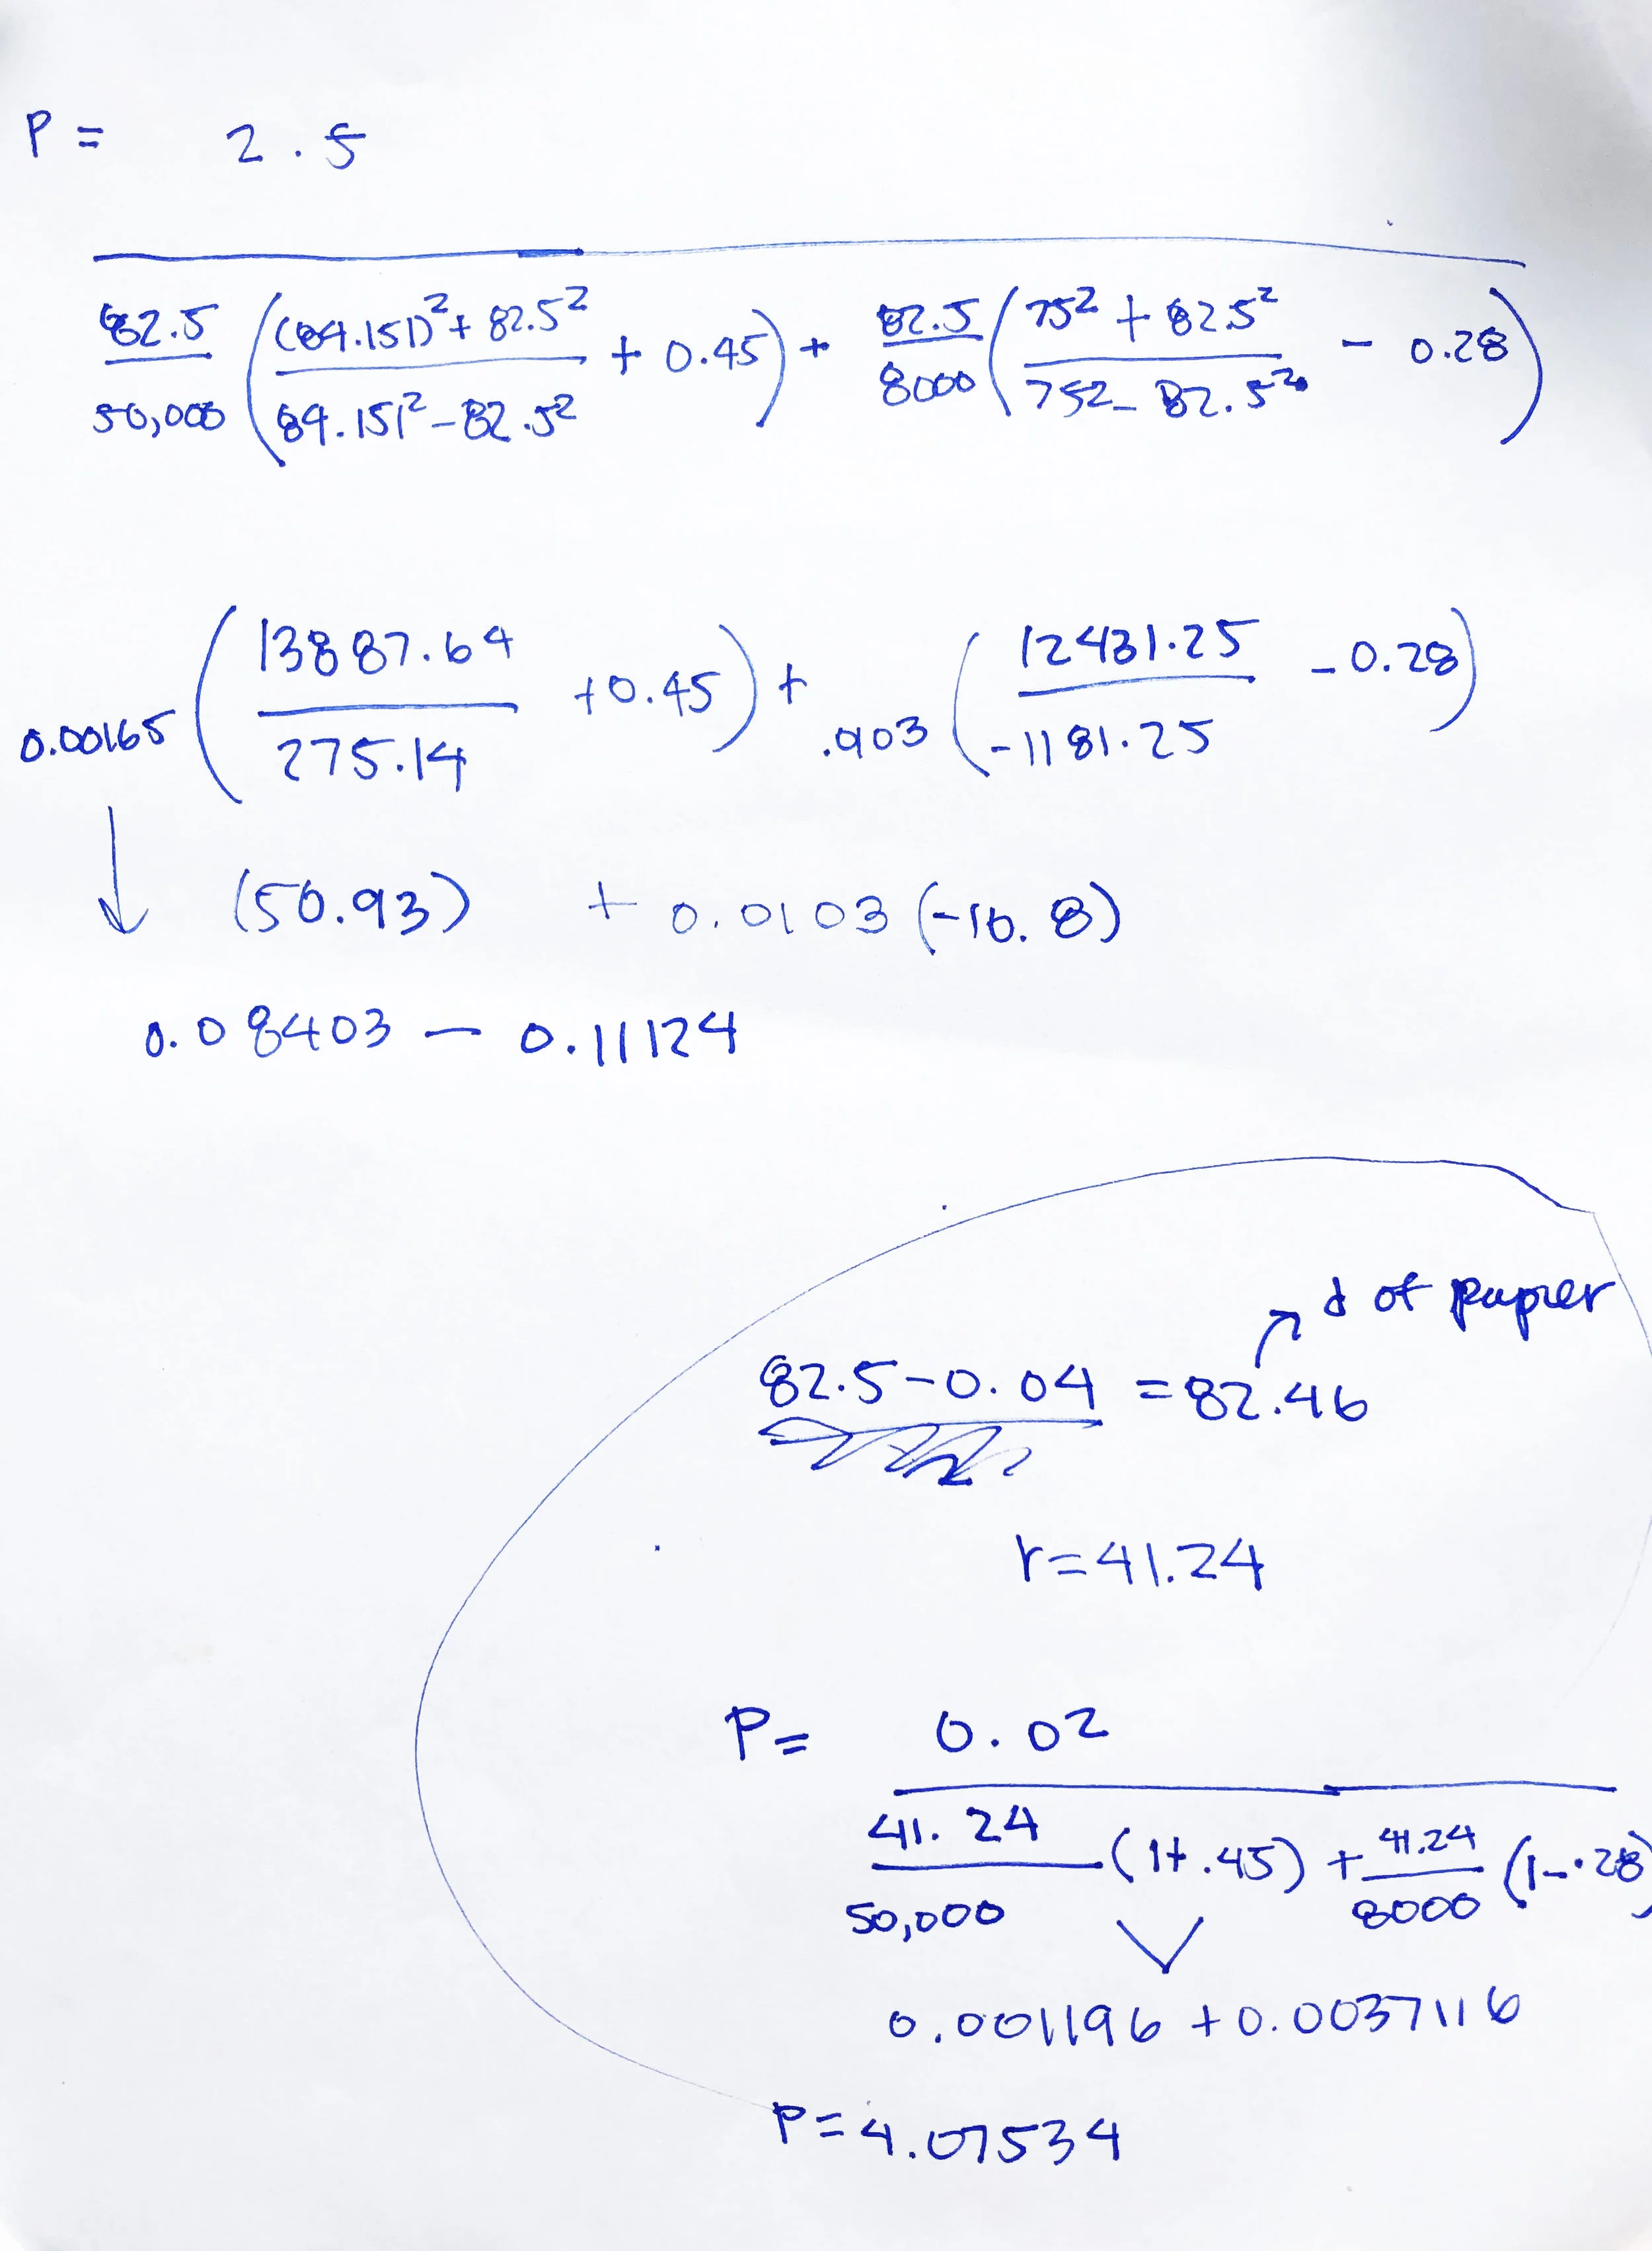 P = 2.5
82.5/50,000 ((84.151)² + 82.5² / 84.151² - 82.5² + 0.45) + 82.5/8000 (75² + 82.5² / 752 - 82.5² - 0.28)
0.00165 (13887.64 / 275.14 + 0.45) + .903 (12431.25 / -1181.25 - 0.28)
↓ (50.93) + 0.0103 (-10.8)
0.08403 - 0.11124
d of papier
82.5 - 0.04 = 82.46
r = 41.24
P = 0.02
41.24/50,000 (1+.45) + 41.24/8000 (1-.28)
0.001196 + 0.0037116
P = 4.07534